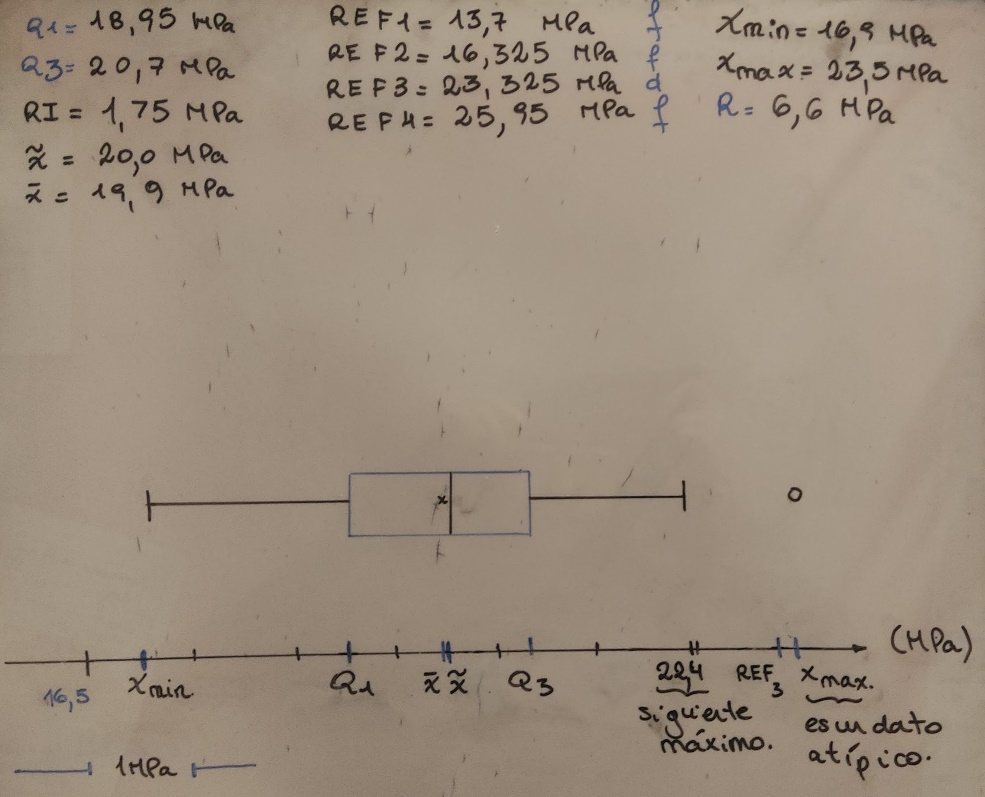 Q1 = 18,95 MPa
Q3 = 20,7 MPa
RI = 1,75 MPa
x̃ = 20,0 MPa
x̄ = 19,9 MPa
REF1 = 13,7 MPa f
REF2 = 16,325 MPa f
REF3 = 23,325 MPa d
REF4 = 25,95 MPa f
xmin = 16,9 MPa
xmax = 23,5 MPa
R = 6,6 MPa
x
(MPa)
16,5 xmin Q1 x̄ x̃ Q3 22,4 REF3 xmax.
siguiente
máximo.
es un dato
atípico.
1MPa